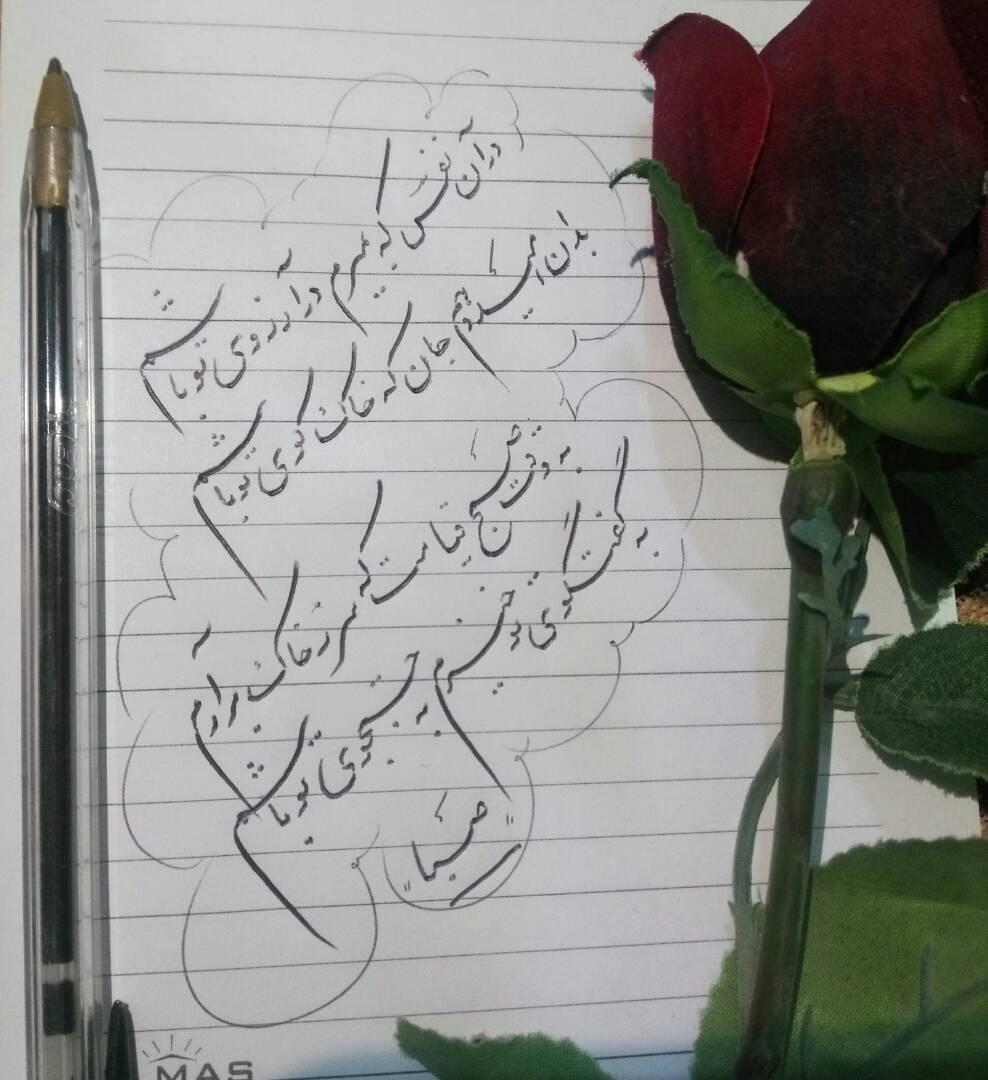 در آن نفس که بمیرم در آرزوی تو باشم
بدان امید دهم جان که خاک کوی تو باشم
به وقت صبح قیامت که سر ز خاک برآرم
به گفت و گوی تو خیزم به جستجوی تو باشم
MAS